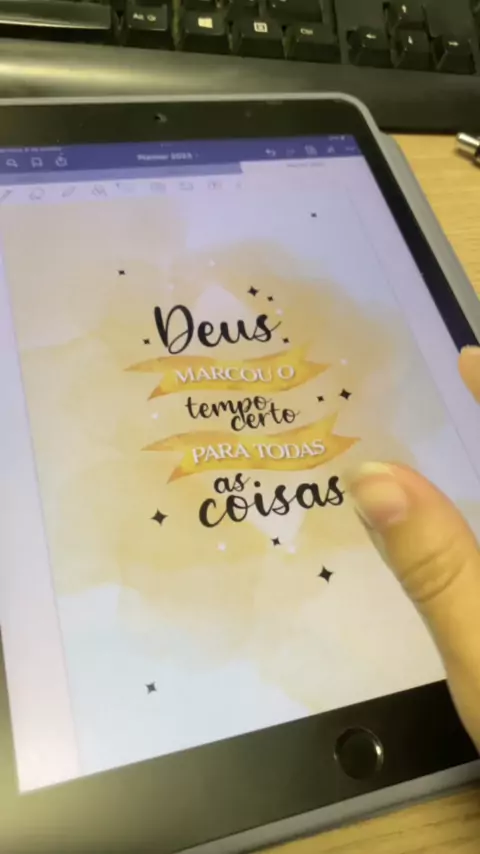 Planner 2023
Deus
MARCOU O
tempo
certo
PARA TODAS
as
coisas
Alt Gr
Ctrl